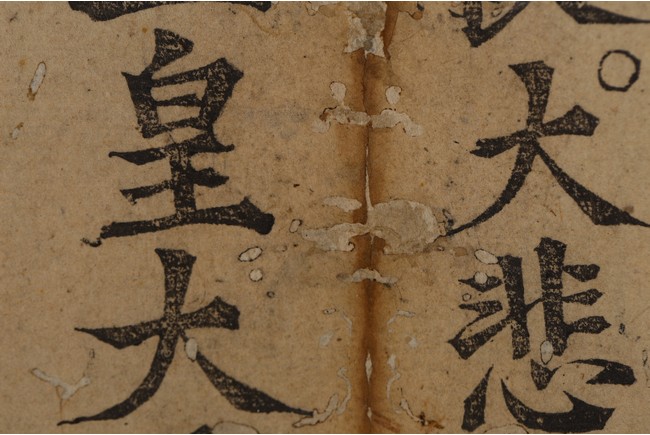 大悲
皇大